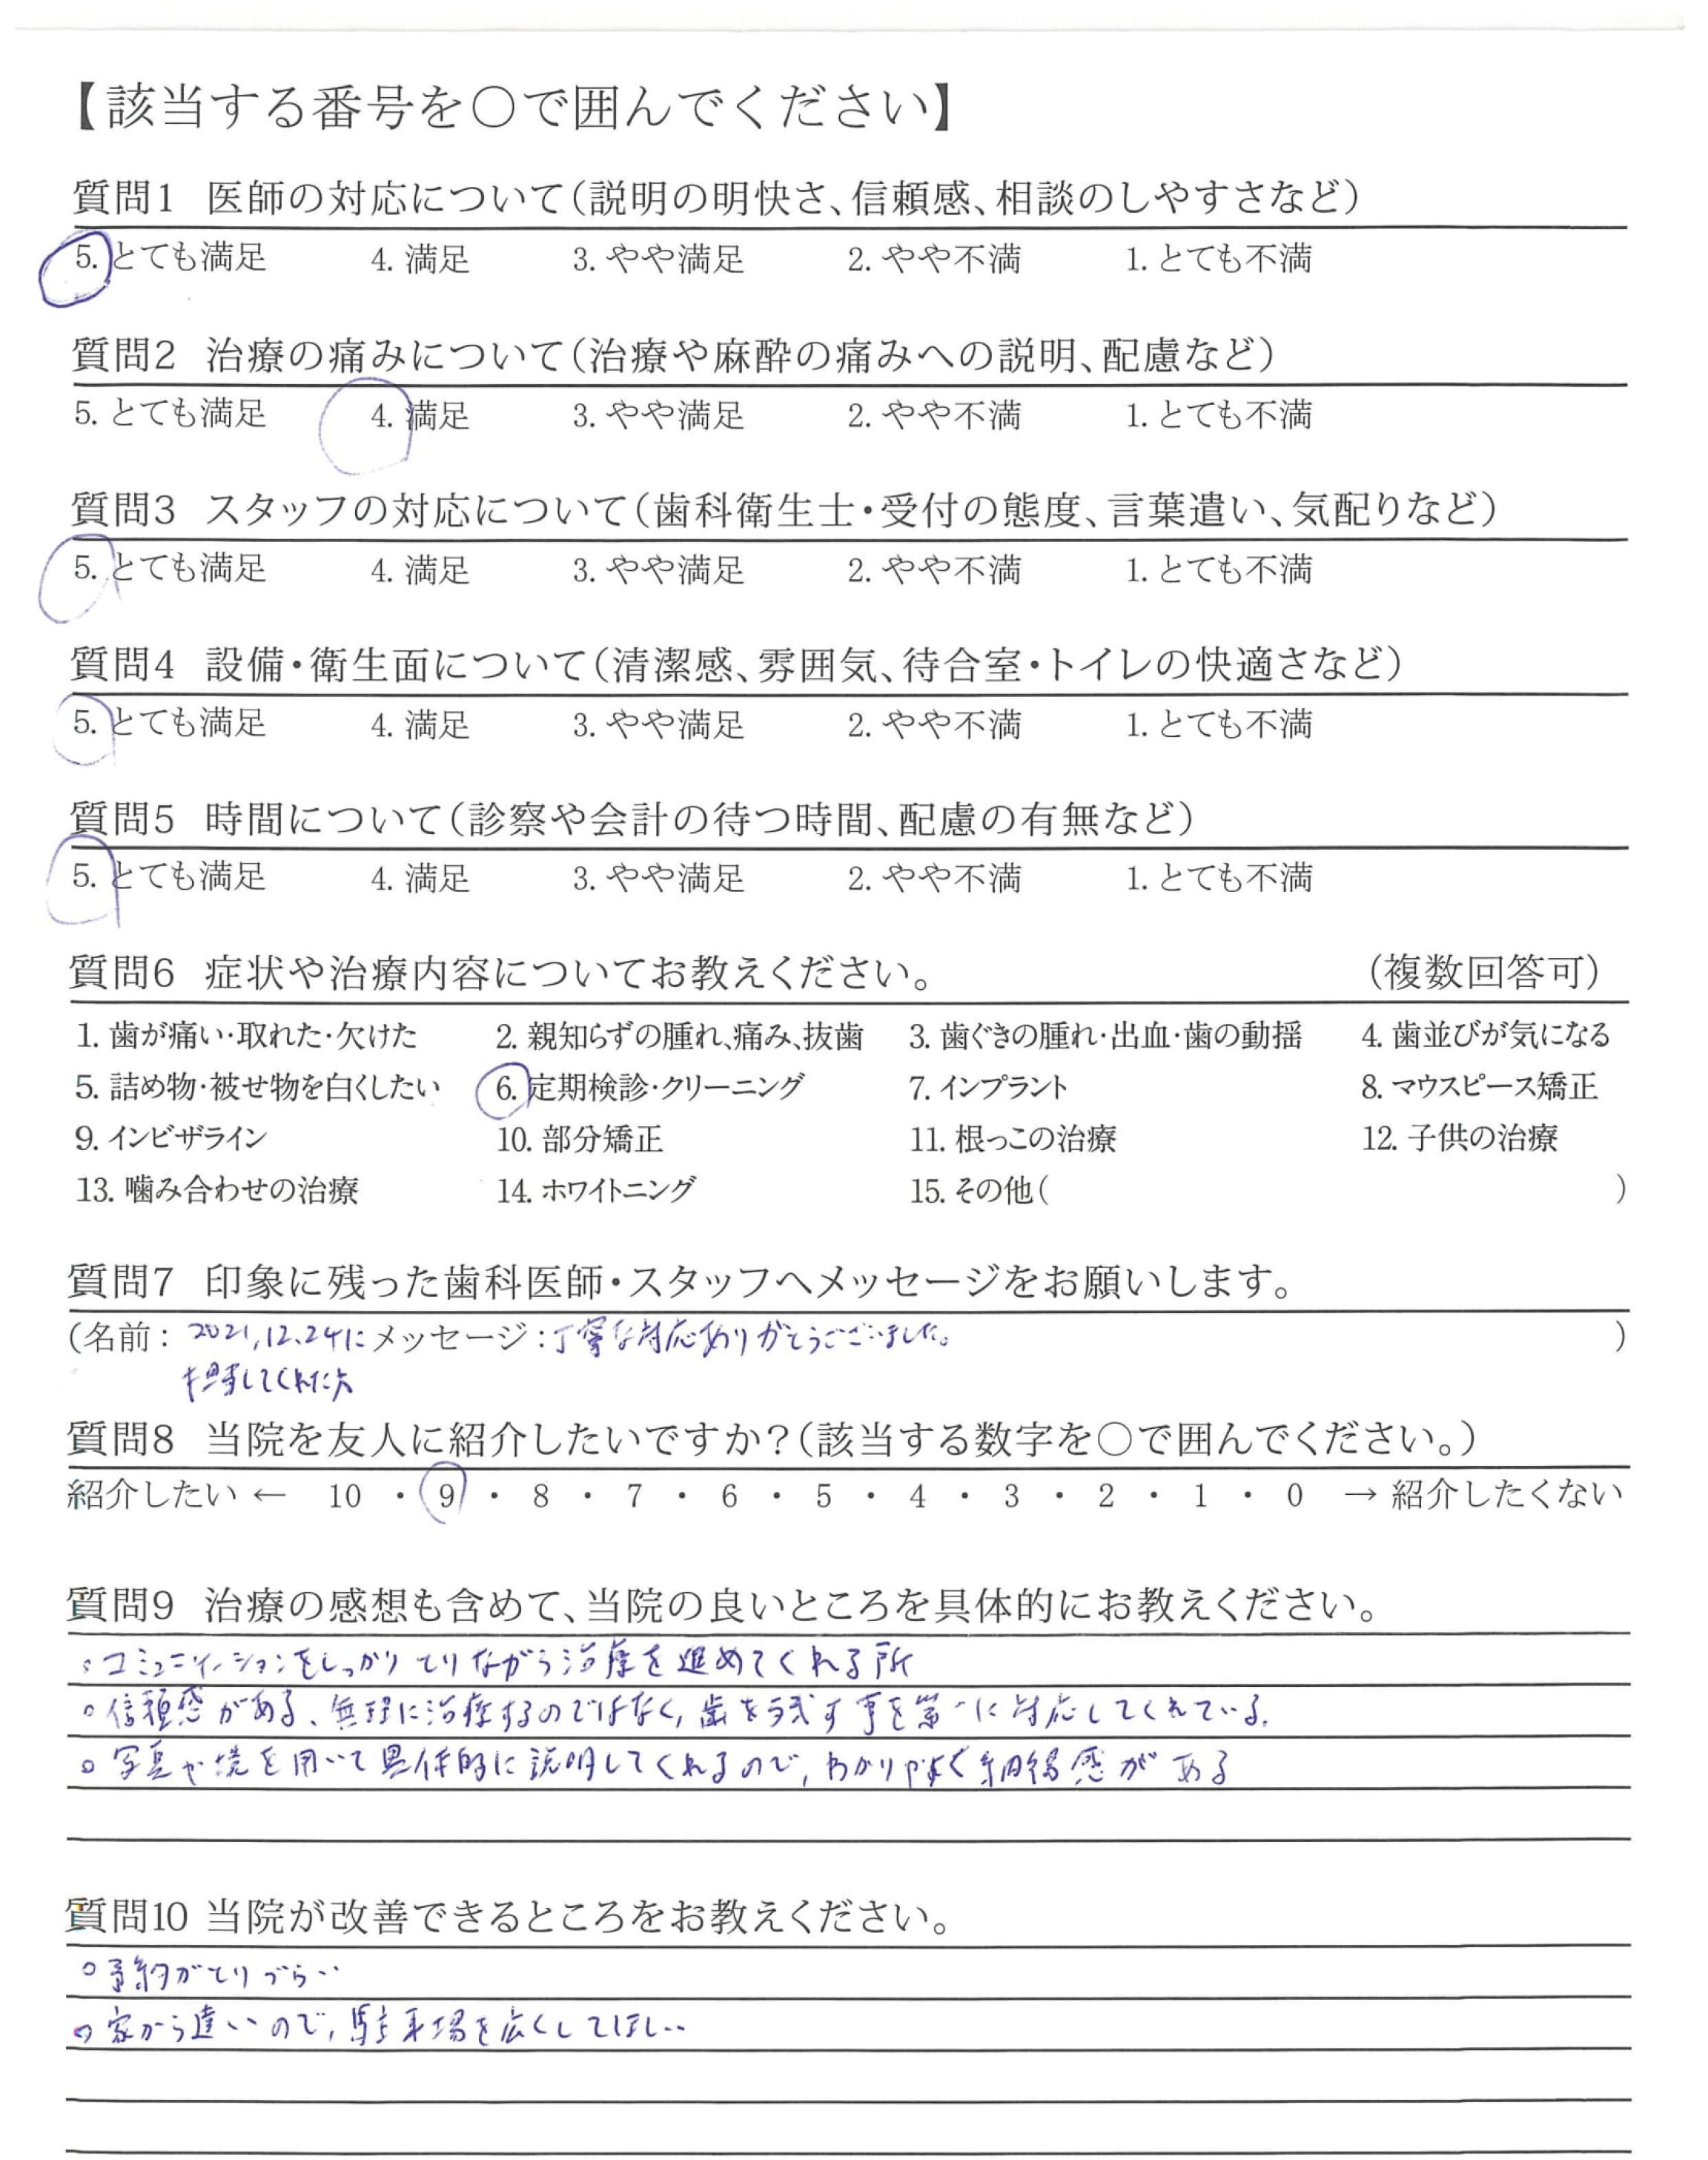 【該当する番号を○で囲んでください】
質問1 医師の対応について(説明の明快さ、信頼感、相談のしやすさなど)
5. とても満足 4. 満足 3. やや満足 2. やや不満 1. とても不満
質問2 治療の痛みについて(治療や麻酔の痛みへの説明、配慮など)
5. とても満足 4. 満足 3. やや満足 2. やや不満 1. とても不満
質問3 スタッフの対応について(歯科衛生士・受付の態度、言葉遣い、気配りなど)
5. とても満足 4. 満足 3. やや満足 2. やや不満 1. とても不満
質問4 設備・衛生面について(清潔感、雰囲気、待合室・トイレの快適さなど)
5. とても満足 4. 満足 3. やや満足 2. やや不満 1. とても不満
質問5 時間について(診察や会計の待つ時間、配慮の有無など)
5. とても満足 4. 満足 3. やや満足 2. やや不満 1. とても不満
質問6 症状や治療内容についてお教えください。 (複数回答可)
1. 歯が痛い・取れた・欠けた 2. 親知らずの腫れ、痛み、抜歯 3. 歯ぐきの腫れ・出血・歯の動揺 4. 歯並びが気になる
5. 詰め物・被せ物を白くしたい 6. 定期検診・クリーニング 7. インプラント 8. マウスピース矯正
9. インビザライン 10. 部分矯正 11. 根っこの治療 12. 子供の治療
13. 噛み合わせの治療 14. ホワイトニング 15. その他( )
質問7 印象に残った歯科医師・スタッフへメッセージをお願いします。
(名前: 2021,12.24に メッセージ:丁寧な対応ありがとうございました。 )
担当してくれた方
質問8 当院を友人に紹介したいですか?(該当する数字を○で囲んでください。)
紹介したい ← 10 ・ 9 ・ 8 ・ 7 ・ 6 ・ 5 ・ 4 ・ 3 ・ 2 ・ 1 ・ 0 → 紹介したくない
質問9 治療の感想も含めて、当院の良いところを具体的にお教えください。
○コミュニケーションをしっかりとりながら治療を進めてくれる所
○信頼感がある、無理に治療するのではなく、歯を残す事を第一に対応してくれている。
○写真や鏡を用いて具体的に説明してくれるので、わかりやすく納得感がある
質問10 当院が改善できるところをお教えください。
○予約がとりづらい
○家から遠いので、駐車場を広くしてほしい